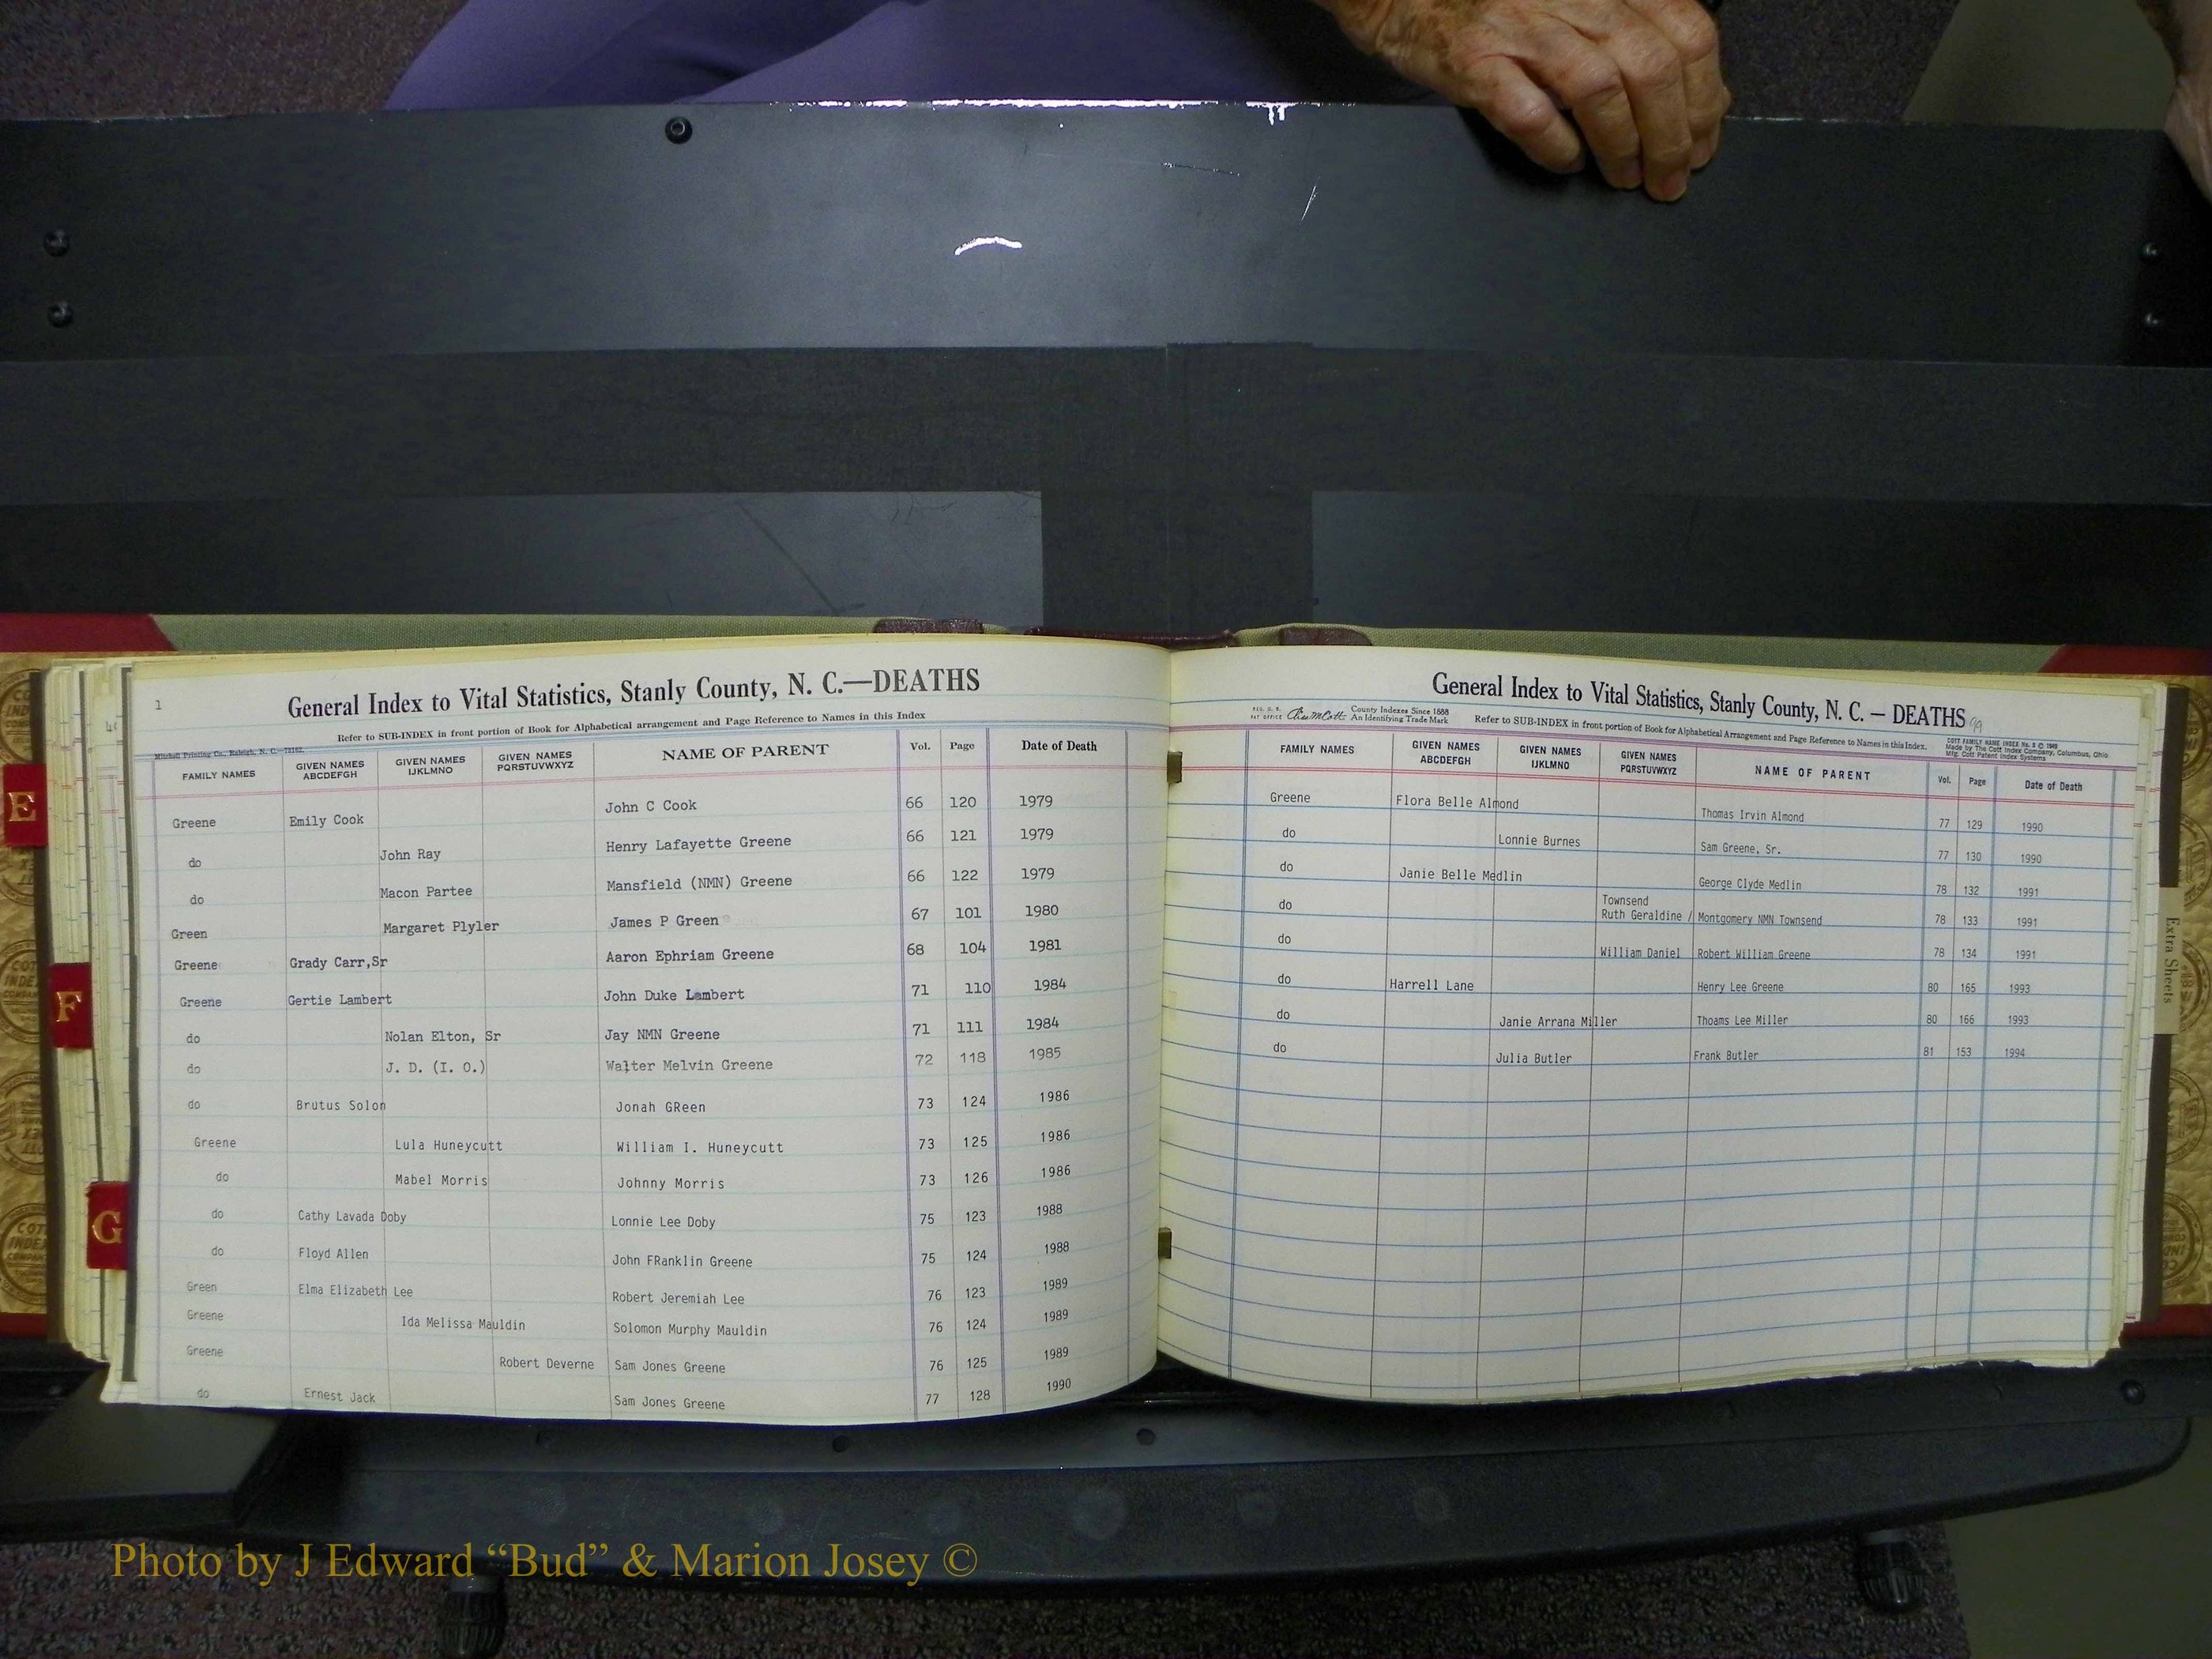 1
General Index to Vital Statistics, Stanly County, N. C.—DEATHS
Refer to SUB-INDEX in front portion of Book for Alphabetical arrangement and Page Reference to Names in this Index
Mitchell Printing Co., Raleigh, N. C.
FAMILY NAMES GIVEN NAMES ABCDEFGH GIVEN NAMES IJKLMNO GIVEN NAMES PQRSTUVWXYZ NAME OF PARENT Vol. Page Date of Death
Greene Emily Cook John C Cook 66 120 1979
do John Ray Henry Lafayette Greene 66 121 1979
do Macon Partee Mansfield (NMN) Greene 66 122 1979
Green Margaret Plyler James P Green 67 101 1980
Greene Grady Carr,Sr Aaron Ephriam Greene 68 104 1981
Greene Gertie Lambert John Duke Lambert 71 110 1984
do Nolan Elton, Sr Jay NMN Greene 71 111 1984
do J. D. (I. O.) Walter Melvin Greene 72 118 1985
do Brutus Solon Jonah GReen 73 124 1986
Greene Lula Huneycutt William I. Huneycutt 73 125 1986
do Mabel Morris Johnny Morris 73 126 1986
do Cathy Lavada Doby Lonnie Lee Doby 75 123 1988
do Floyd Allen John FRanklin Greene 75 124 1988
Green Elma Elizabeth Lee Robert Jeremiah Lee 76 123 1989
Greene Ida Melissa Mauldin Solomon Murphy Mauldin 76 124 1989
Greene Robert Deverne Sam Jones Greene 76 125 1989
do Ernest Jack Sam Jones Greene 77 128 1990
E
F
G
General Index to Vital Statistics, Stanly County, N. C. — DEATHS
County Indexes Since 1888
An Identifying Trade Mark
Refer to SUB-INDEX in front portion of Book for Alphabetical Arrangement and Page Reference to Names in this Index.
COTT FAMILY NAME INDEX No. 5 © 1949
Made by The Cott Index Company, Columbus, Ohio
Mfg. Cott Patent Index Systems
FAMILY NAMES GIVEN NAMES ABCDEFGH GIVEN NAMES IJKLMNO GIVEN NAMES PQRSTUVWXYZ NAME OF PARENT Vol. Page Date of Death
Greene Flora Belle Almond Thomas Irvin Almond 77 129 1990
do Lonnie Burnes Sam Greene, Sr. 77 130 1990
do Janie Belle Medlin George Clyde Medlin 78 132 1991
Townsend
do Ruth Geraldine / Montgomery NMN Townsend 78 133 1991
do William Daniel Robert William Greene 78 134 1991
do Harrell Lane Henry Lee Greene 80 165 1993
do Janie Arrana Miller Thoams Lee Miller 80 166 1993
do Julia Butler Frank Butler 81 153 1994
Extra Sheets
Photo by J Edward “Bud” & Marion Josey ©